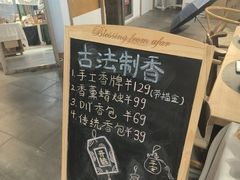 Blessing from afar
古法制香
1.手工香牌¥129(带福金)
2.香薰蜡烛¥99
3.DIY香包 ¥69
4.传统香包¥39